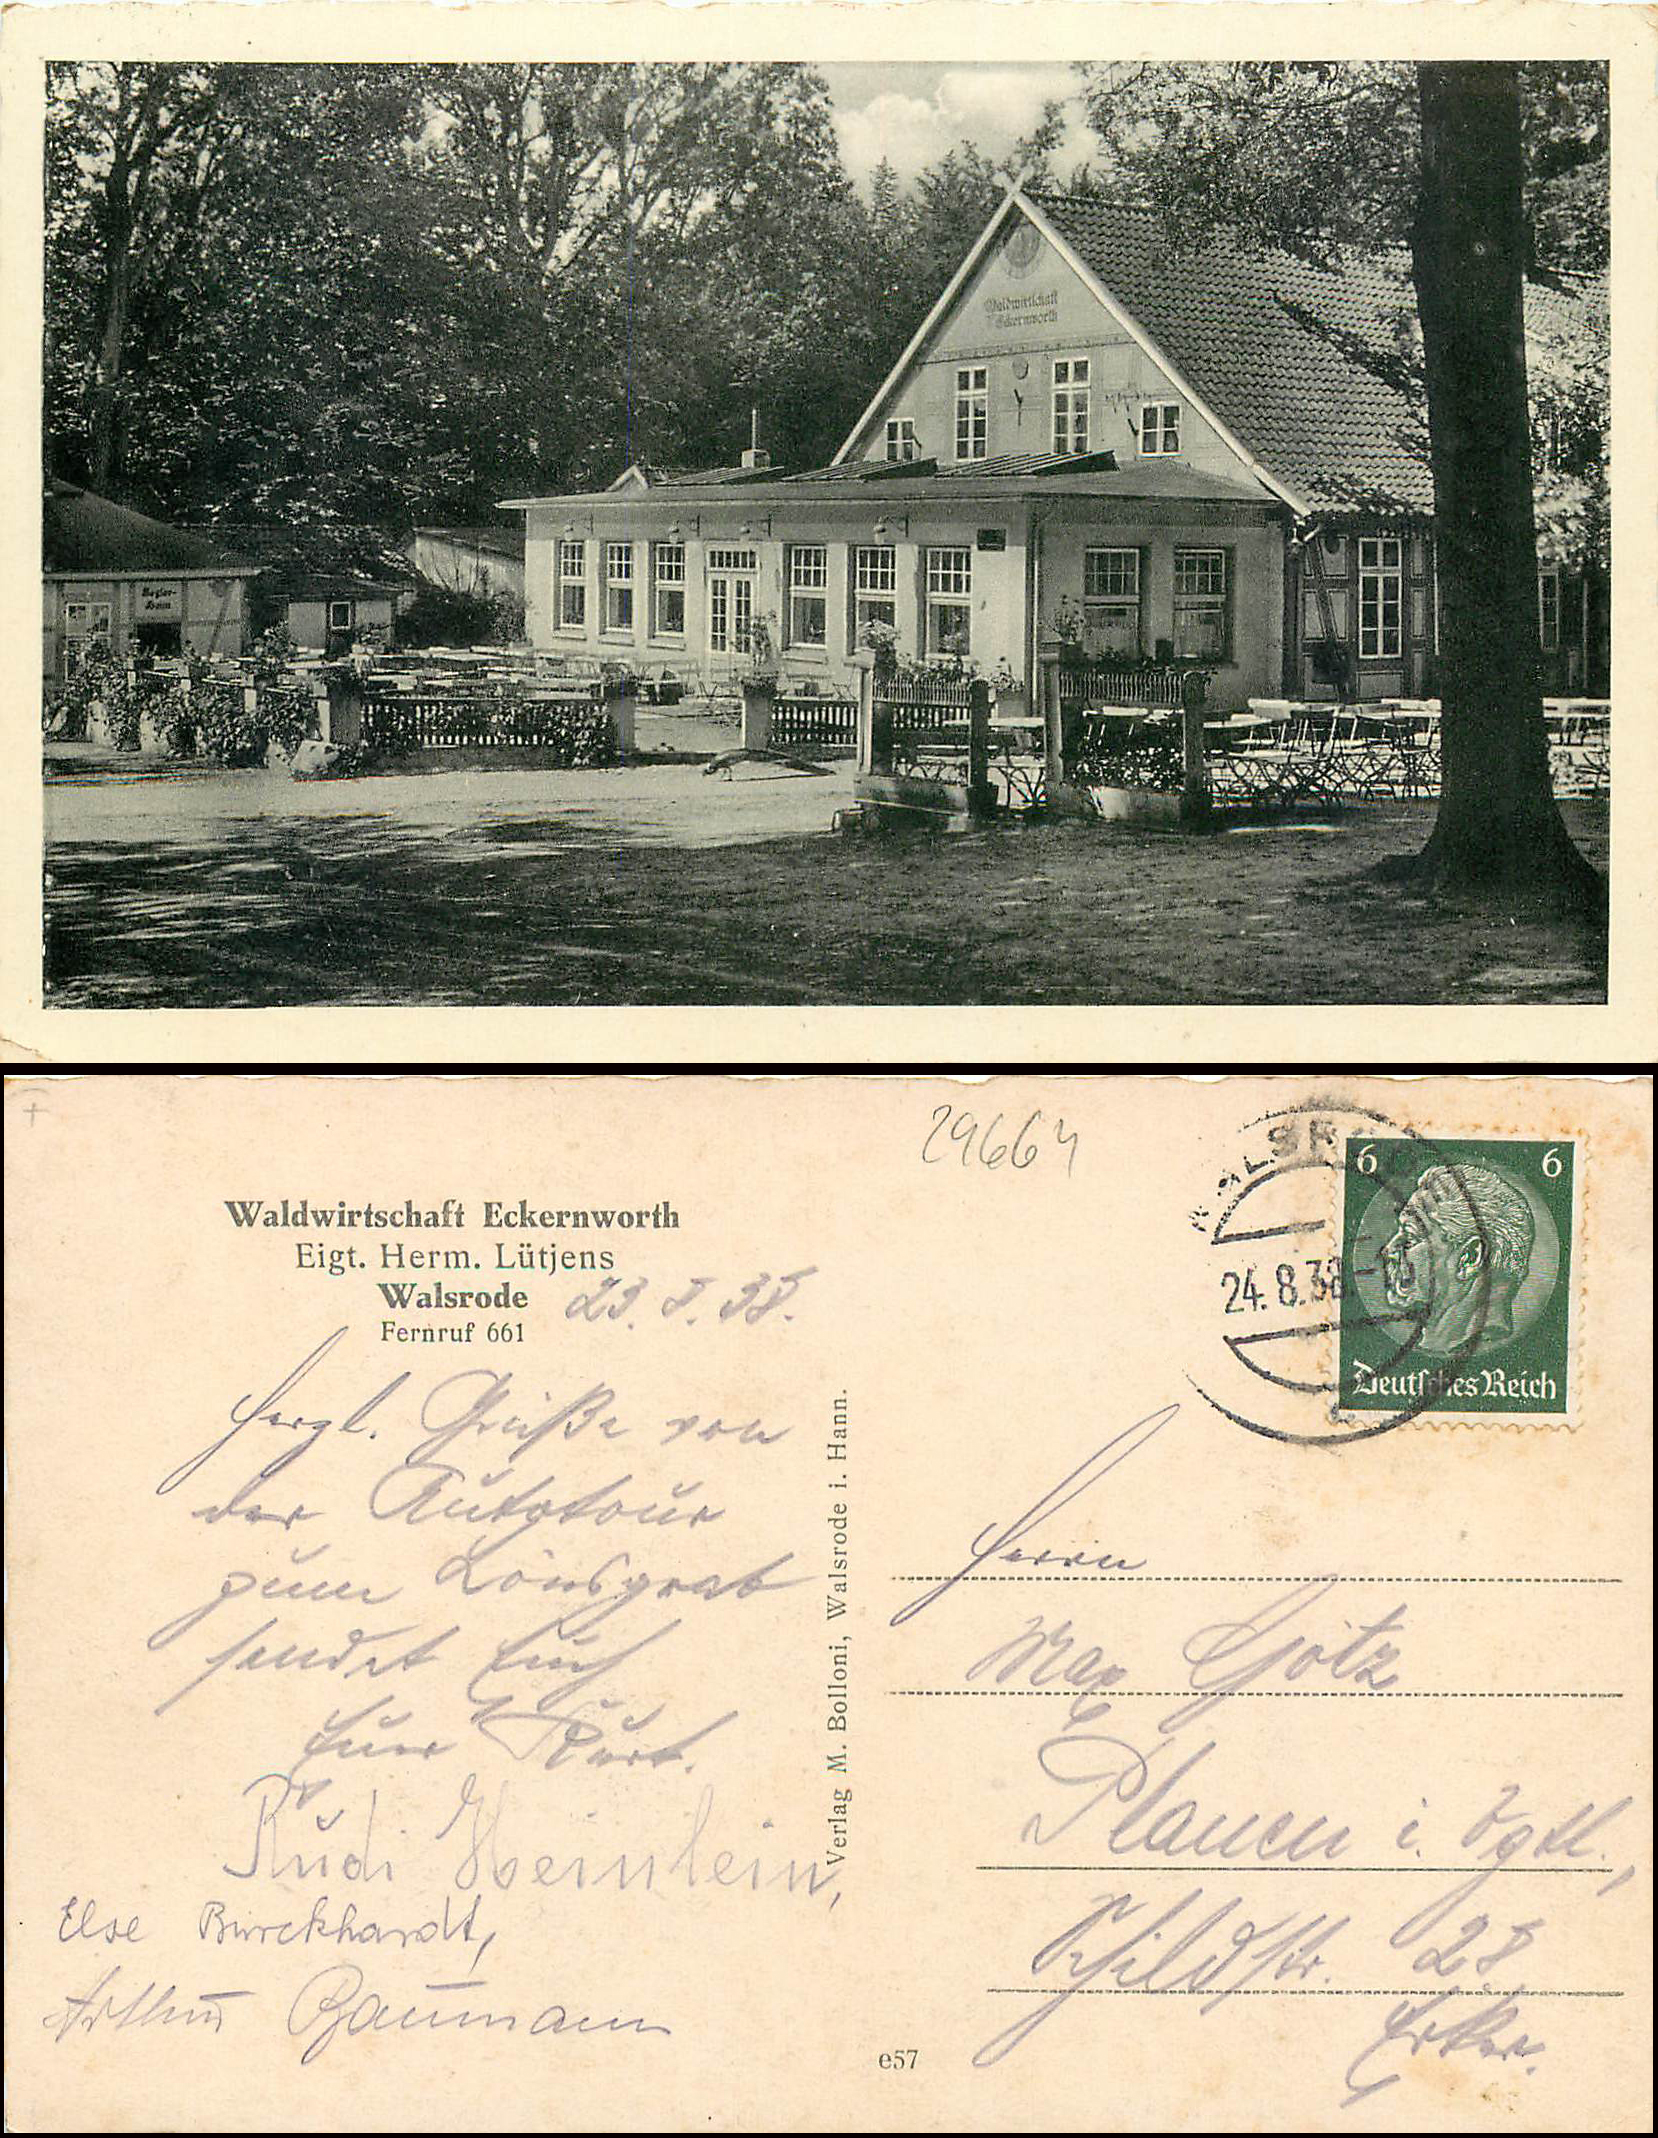 Waldwirtschaft
Eckernworth
Kegler-
Heim
29664
Waldwirtschaft Eckernworth
Eigt. Herm. Lütjens
Walsrode
Fernruf 661
23. 8. 38.
Herzl. Grüße von
der Autotour
zum Lönsgrab
sendet Euch
Euer Kurt.
Rudi Heinlein,
Else Burckhardt,
Arthur Baumann
Verlag M. Bolloni, Walsrode i. Hann.
e57
WALSRODE
24.8.38
6 6
Deutsches Reich
Herrn
Max Götz
Plauen i. Vgtl.,
Schildstr. 28
Erker.